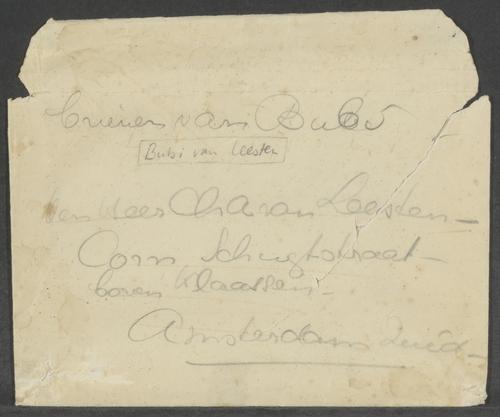 brieven van Bubi
Bubi van Leesten
den Heer Ch. A. van Leesten -
Corn Schuytstraat -
boven Klaassen -
Amsterdam Zuid -